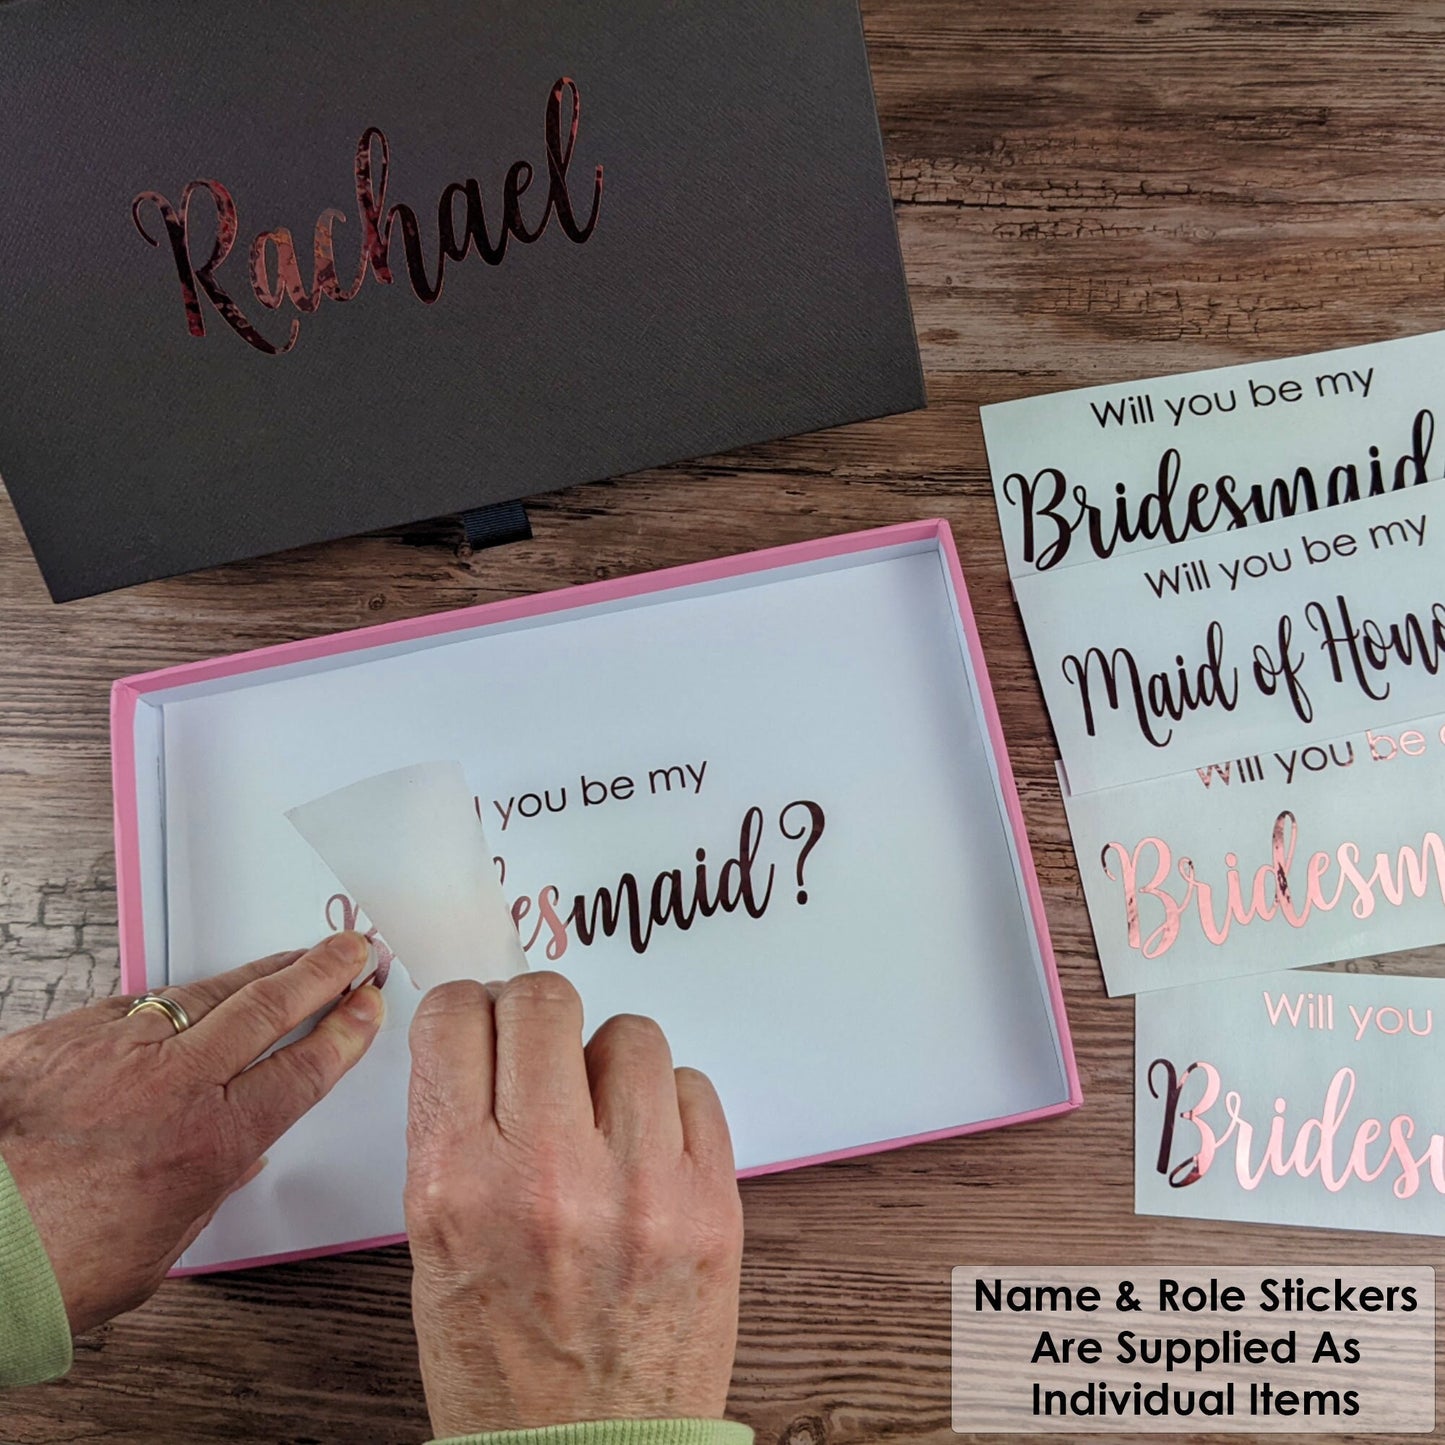 Rachael
Will you be my
Bridesmaid
Will you be my
Maid of Hono
Will you be
Bridesm
Will you
Brides
you be my
esmaid?
Name & Role Stickers
Are Supplied As
Individual Items